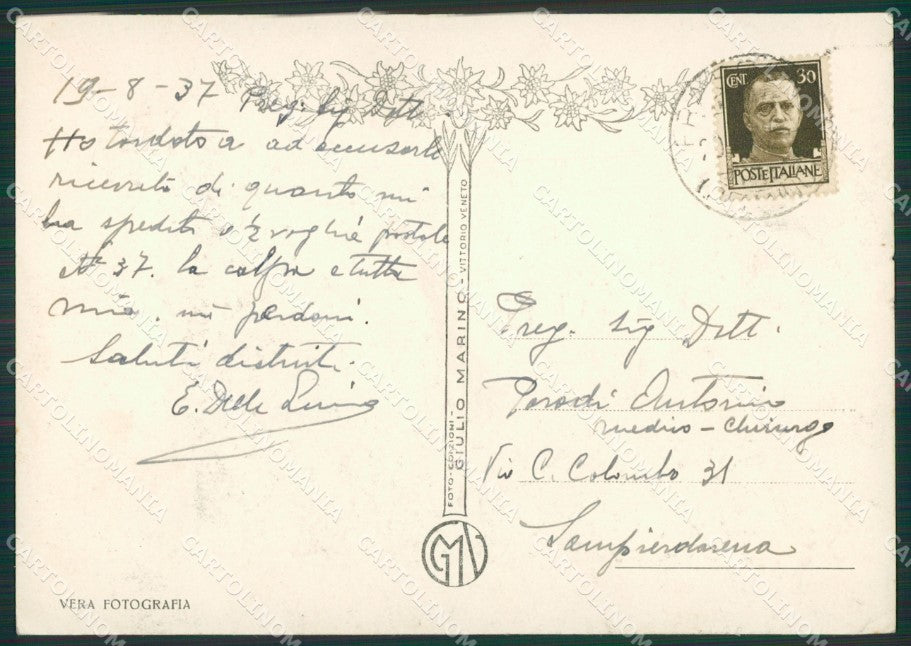 19-8-37 Preg. Sig Dott.
Ho tardato a ad accusarle
ricevuta di quanto mi
ha spedito vaglia postale
N° 37. la colpa e tutta
mia. mi perdoni.
Saluti distinti.
E. Dalle
CENT 30
POSTE ITALIANE
Preg. Sig Dott.
Parodi Antonio
medico-chirurgo
Via C. Colombo 31
Sampierdarena
FOTO-EDIZIONI-
GIULIO MARINO - VITTORIO VENETO
GMV
VERA FOTOGRAFIA
CARTOLINOMANIA